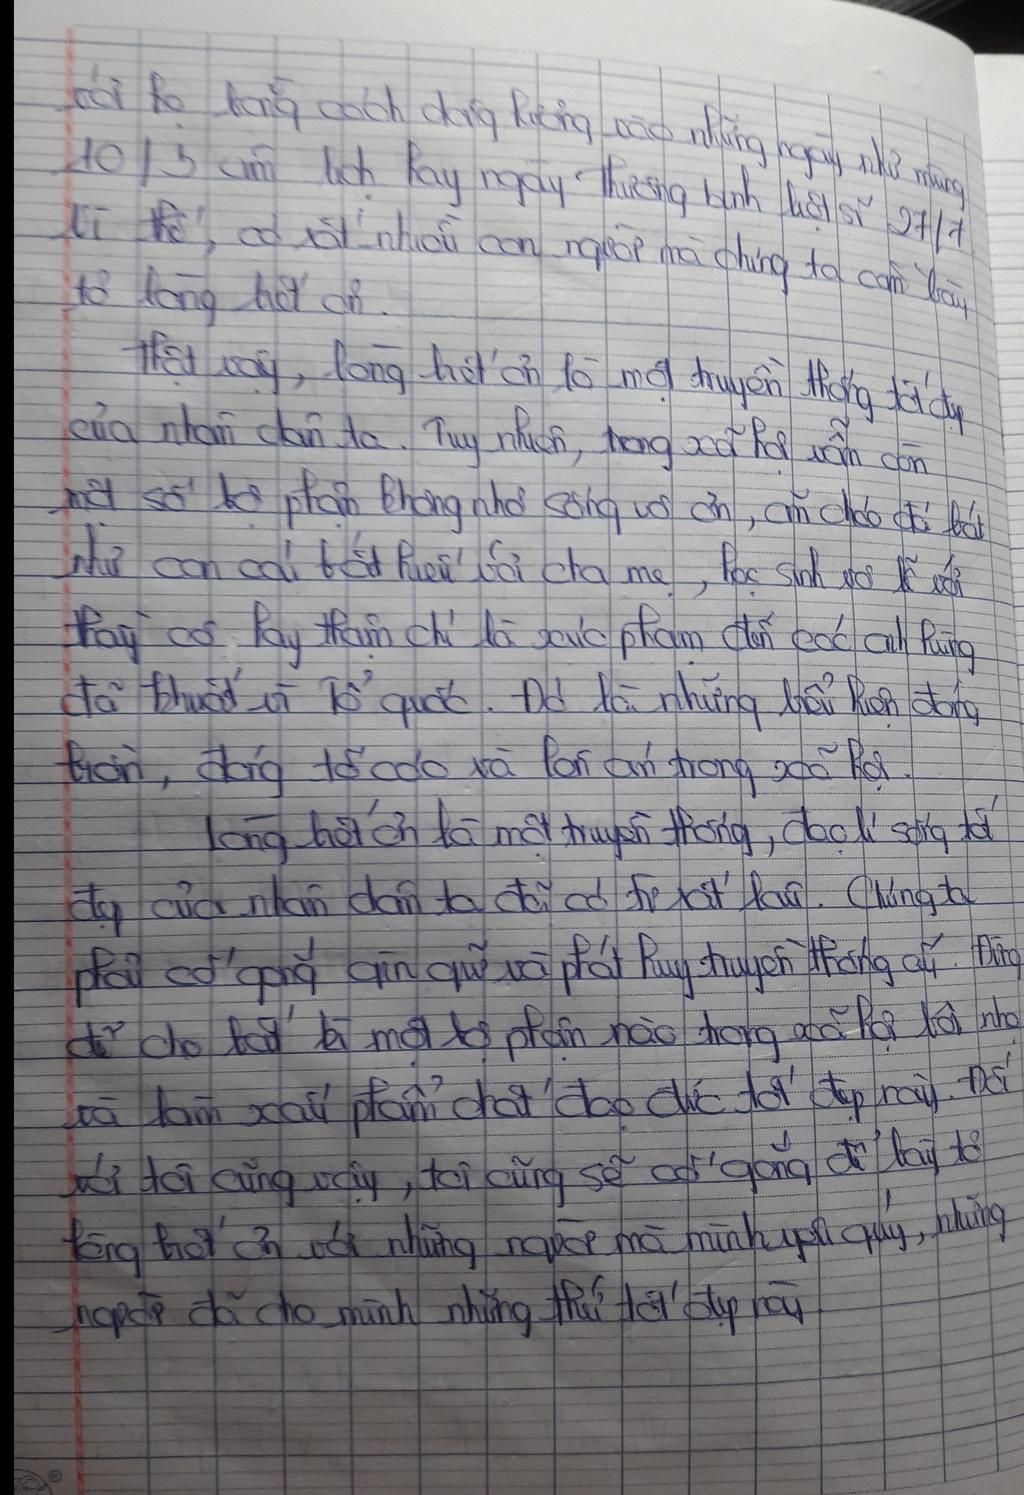 với họ bằng cách dâng hương vào những ngày như mùng
10/3 âm lịch hay ngày thương binh liệt sĩ 27/7
Vì thế, có rất nhiều con người mà chúng ta cần bày
tỏ lòng biết ơn.
Thật vậy, lòng biết ơn là một truyền thống tốt đẹp
của nhân dân ta. Tuy nhiên, trong xã hội vẫn còn
một số bộ phận không nhỏ sống vô ơn, ăn cháo đá bát
như con cái bất hiếu với cha mẹ, học sinh vô lễ với
thầy cô hay thậm chí là xúc phạm đến các anh hùng
đã khuất vì Tổ quốc. Đó là những biểu hiện đáng
buồn, đáng tố cáo và lên án trong xã hội.
Lòng biết ơn là một truyền thống, đạo lí sống tốt
đẹp của nhân dân ta đã có từ rất lâu. Chúng ta
phải cố gắng gìn giữ và phát huy truyền thống ấy. Đừng
để cho bất kì một bộ phận nào trong xã hội bôi nhọ
và làm xấu phẩm chất đạo đức tốt đẹp này. Đối
với tôi cũng vậy, tôi cũng sẽ cố gắng để bày tỏ
lòng biết ơn với những người mà mình yêu quý, những
người đã cho mình những thứ tốt đẹp này